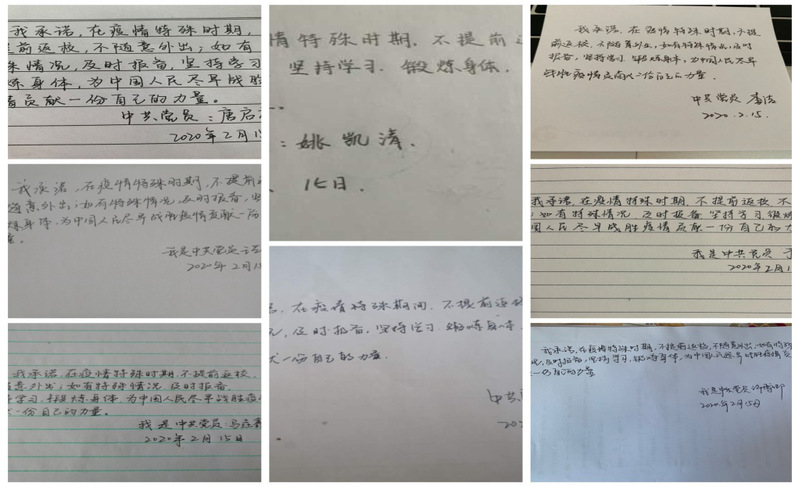 我承诺，在疫情特殊时期，
提前返校，不随意外出；如有
殊情况，及时报备，坚持学习
炼身体，为中国人民尽早战胜
情贡献一份自己的力量。
中共党员：唐启
2020年2月1
我承诺，在疫情特殊时期，不提前
随意外出；如有特殊情况，及时报备，坚
炼身体，为中国人民尽早战胜疫情贡献一份
我是中共党员
2020年2月15
我承诺，在疫情特殊时期，不提前返校，
随意外出；如有特殊情况，及时报备，
学习，锻炼身体，为中国人民尽早战胜疫
一份自己的力量。
我是中共党员
2020年2月15日
情特殊时期，不提前
坚持学习，锻炼身体，
：姚凯清.
15日.
，在疫情特殊期间，不提前返
，及时报备，坚持学习，锻炼身体，
一份自己的力量.
中共
202
我承诺，在疫情特殊时期，不提
前返校，不随意外出，如有特殊情况，及时
报备，坚持学习，锻炼身体，为中国人民尽早
战胜疫情贡献一份自己的力量.
中共党员
2020.2.15.
我承诺，在疫情特殊时期，不提前返校，不
；如有特殊情况，及时报备，坚持学习锻炼
国人民尽早战胜疫情贡献一份自己的力
我是中共党员
2020年2月1
我承诺，在疫情特殊时期，不提前返校，不随意外出，如有特殊
况，及时报备，坚持学习，锻炼身体，为中国人民尽早战胜疫情贡
一份自己的力量
我是中共党员
2020年2月15日